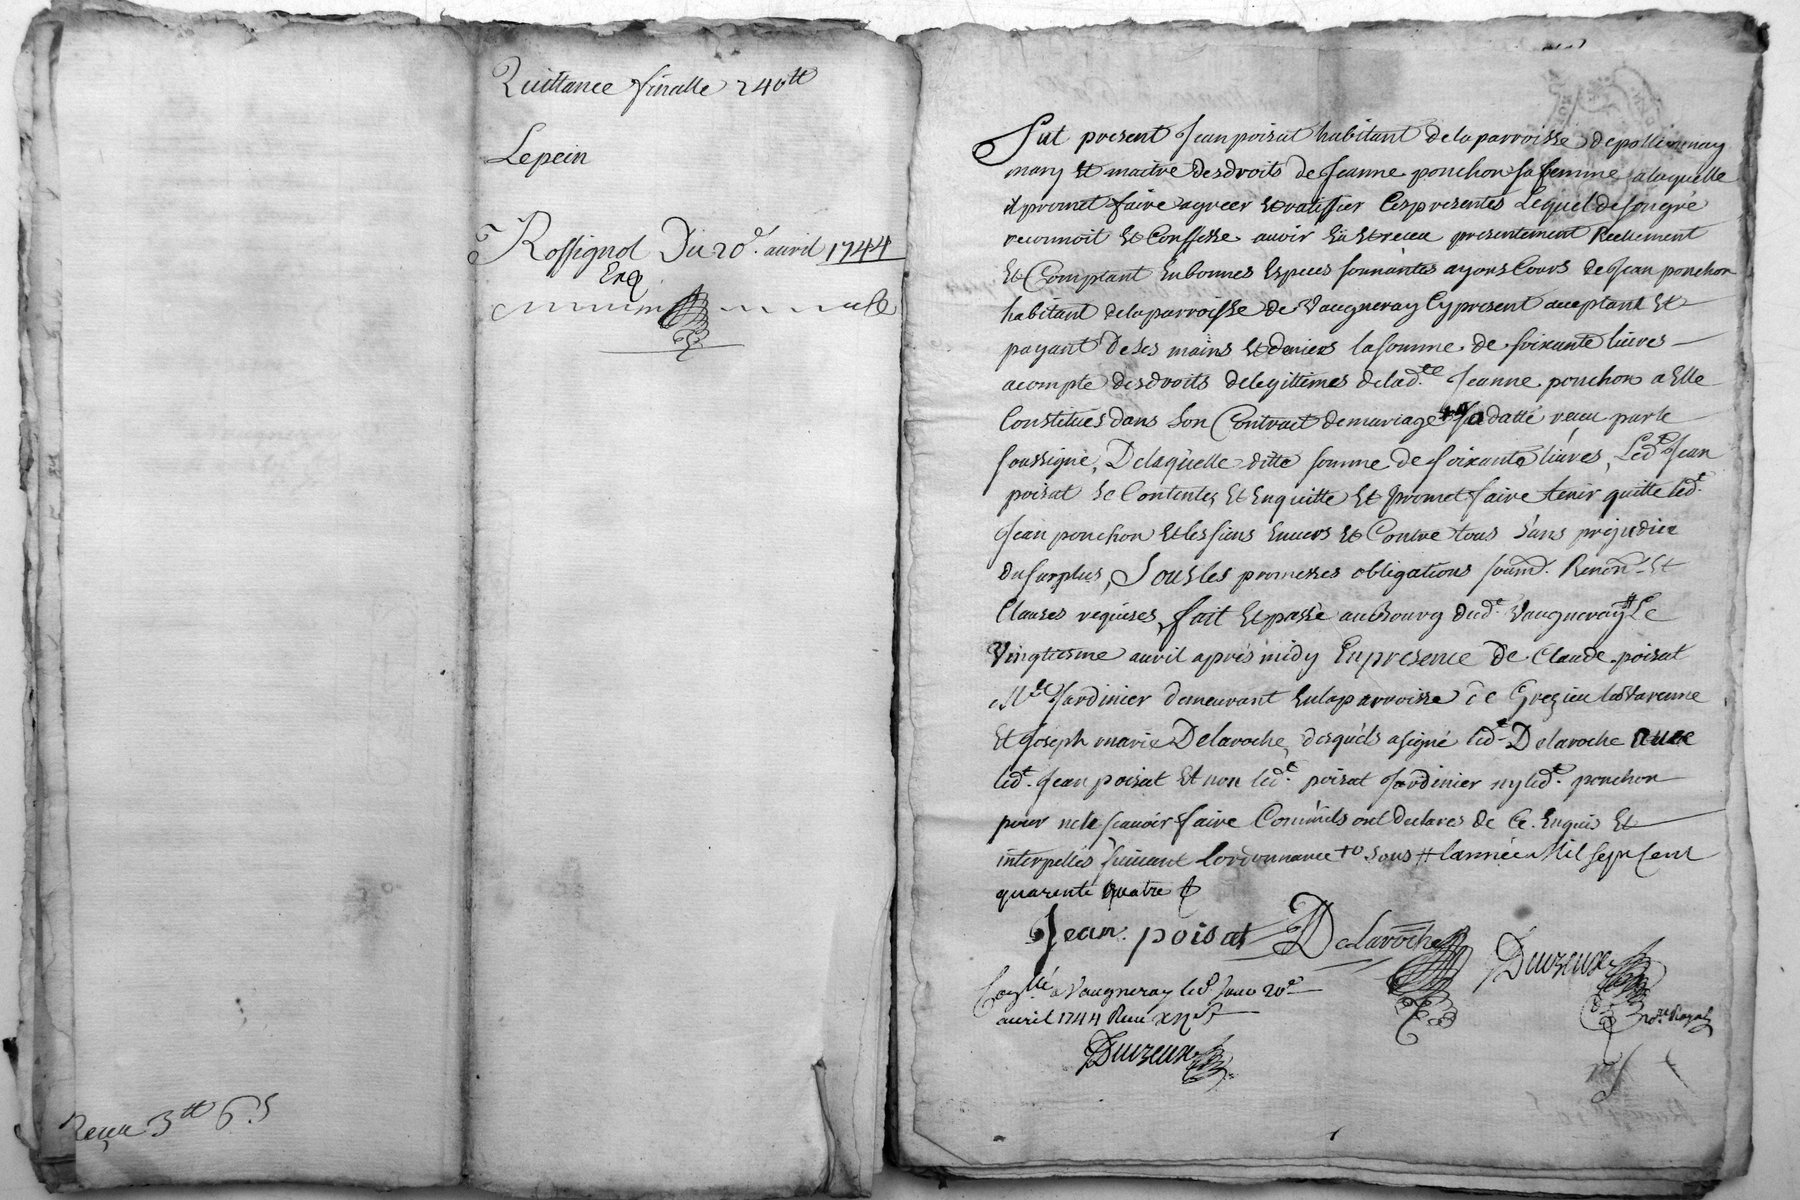 Quittance finalle 240ᵗᵗ
Lepein
Rossignol Du 20ᵉ. auril 1744
Reçu 3ᵗᵗ 6 s
Fut present Jean poisat habitant de la parroisse de polliennay
mary Et maitre des droits de Jeanne ponchon sa femme a laquelle
il promet faire agreer Et ratiffier Ces presentes Lequel de son gré
reconnoit Et Confesse auoir Eü Et receu presentement Reelement
Et Comptant En bonnes Especes sonnantes ayans Cours de Jean ponchon
habitant de la parroisse de Vaugneray Cy present acceptant Et
payant de ses mains Et deniers la somme de soixante liures
a compte des droits de legittimes de lad.ᵗᵉ Jeanne ponchon a Elle
Constitués dans son Contract de mariage datté receu par le
soussigné, De laquelle ditte somme de soixante liures, Led.ᵗ Jean
poisat se Contente, Et En quitte Et promet faire tenir quitte led.ᵗ
Jean ponchon Et les siens Enuers Et Contre tous sans prejudice
du surplus, Sous les promesses obligations soum. Renon. Et
Clauses requises, fait Et passé au Bourg dud.ᵗ Vaugneray # Le
Vingtiesme auril aprés midy En presence de Claude poisat
Mᵉ Jardinier demeurant En la parroisse de Grezieu la Varenne
Et Joseph marie Delaroche, desquels a signé led.ᵗ Delaroche auec
led.ᵗ Jean poisat Et non led.ᵗ poisat Jardinier ny led.ᵗ ponchon
pour ne le scauoir faire Comm'ils ont declarés de Ce Enquis Et
interpellés suiuant l'ordonnance sous # l'année Mil sept Cent
quarente quatre
Jean poisat Delaroche
Con.ˡˡᵉ a Vaugneray led. Jour 20ᵉ
auril 1744 Receu
noʳᵉ Royal